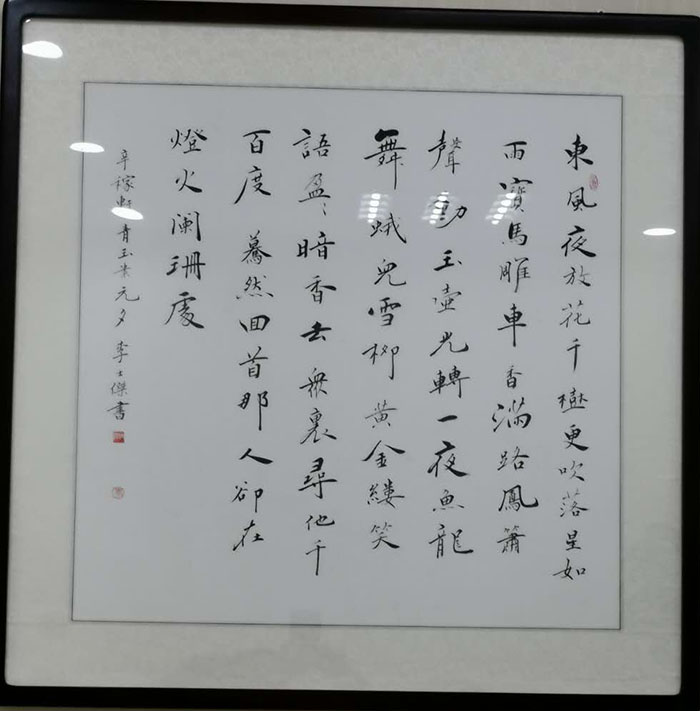 東風夜放花千樹更吹落星如
雨寶馬雕車香滿路鳳簫
聲動玉壺光轉一夜魚龍
舞蛾兒雪柳黃金縷笑
語盈〻暗香去衆裏尋他千
百度驀然回首那人卻在
燈火闌珊處
辛稼軒青玉案元夕李士傑書